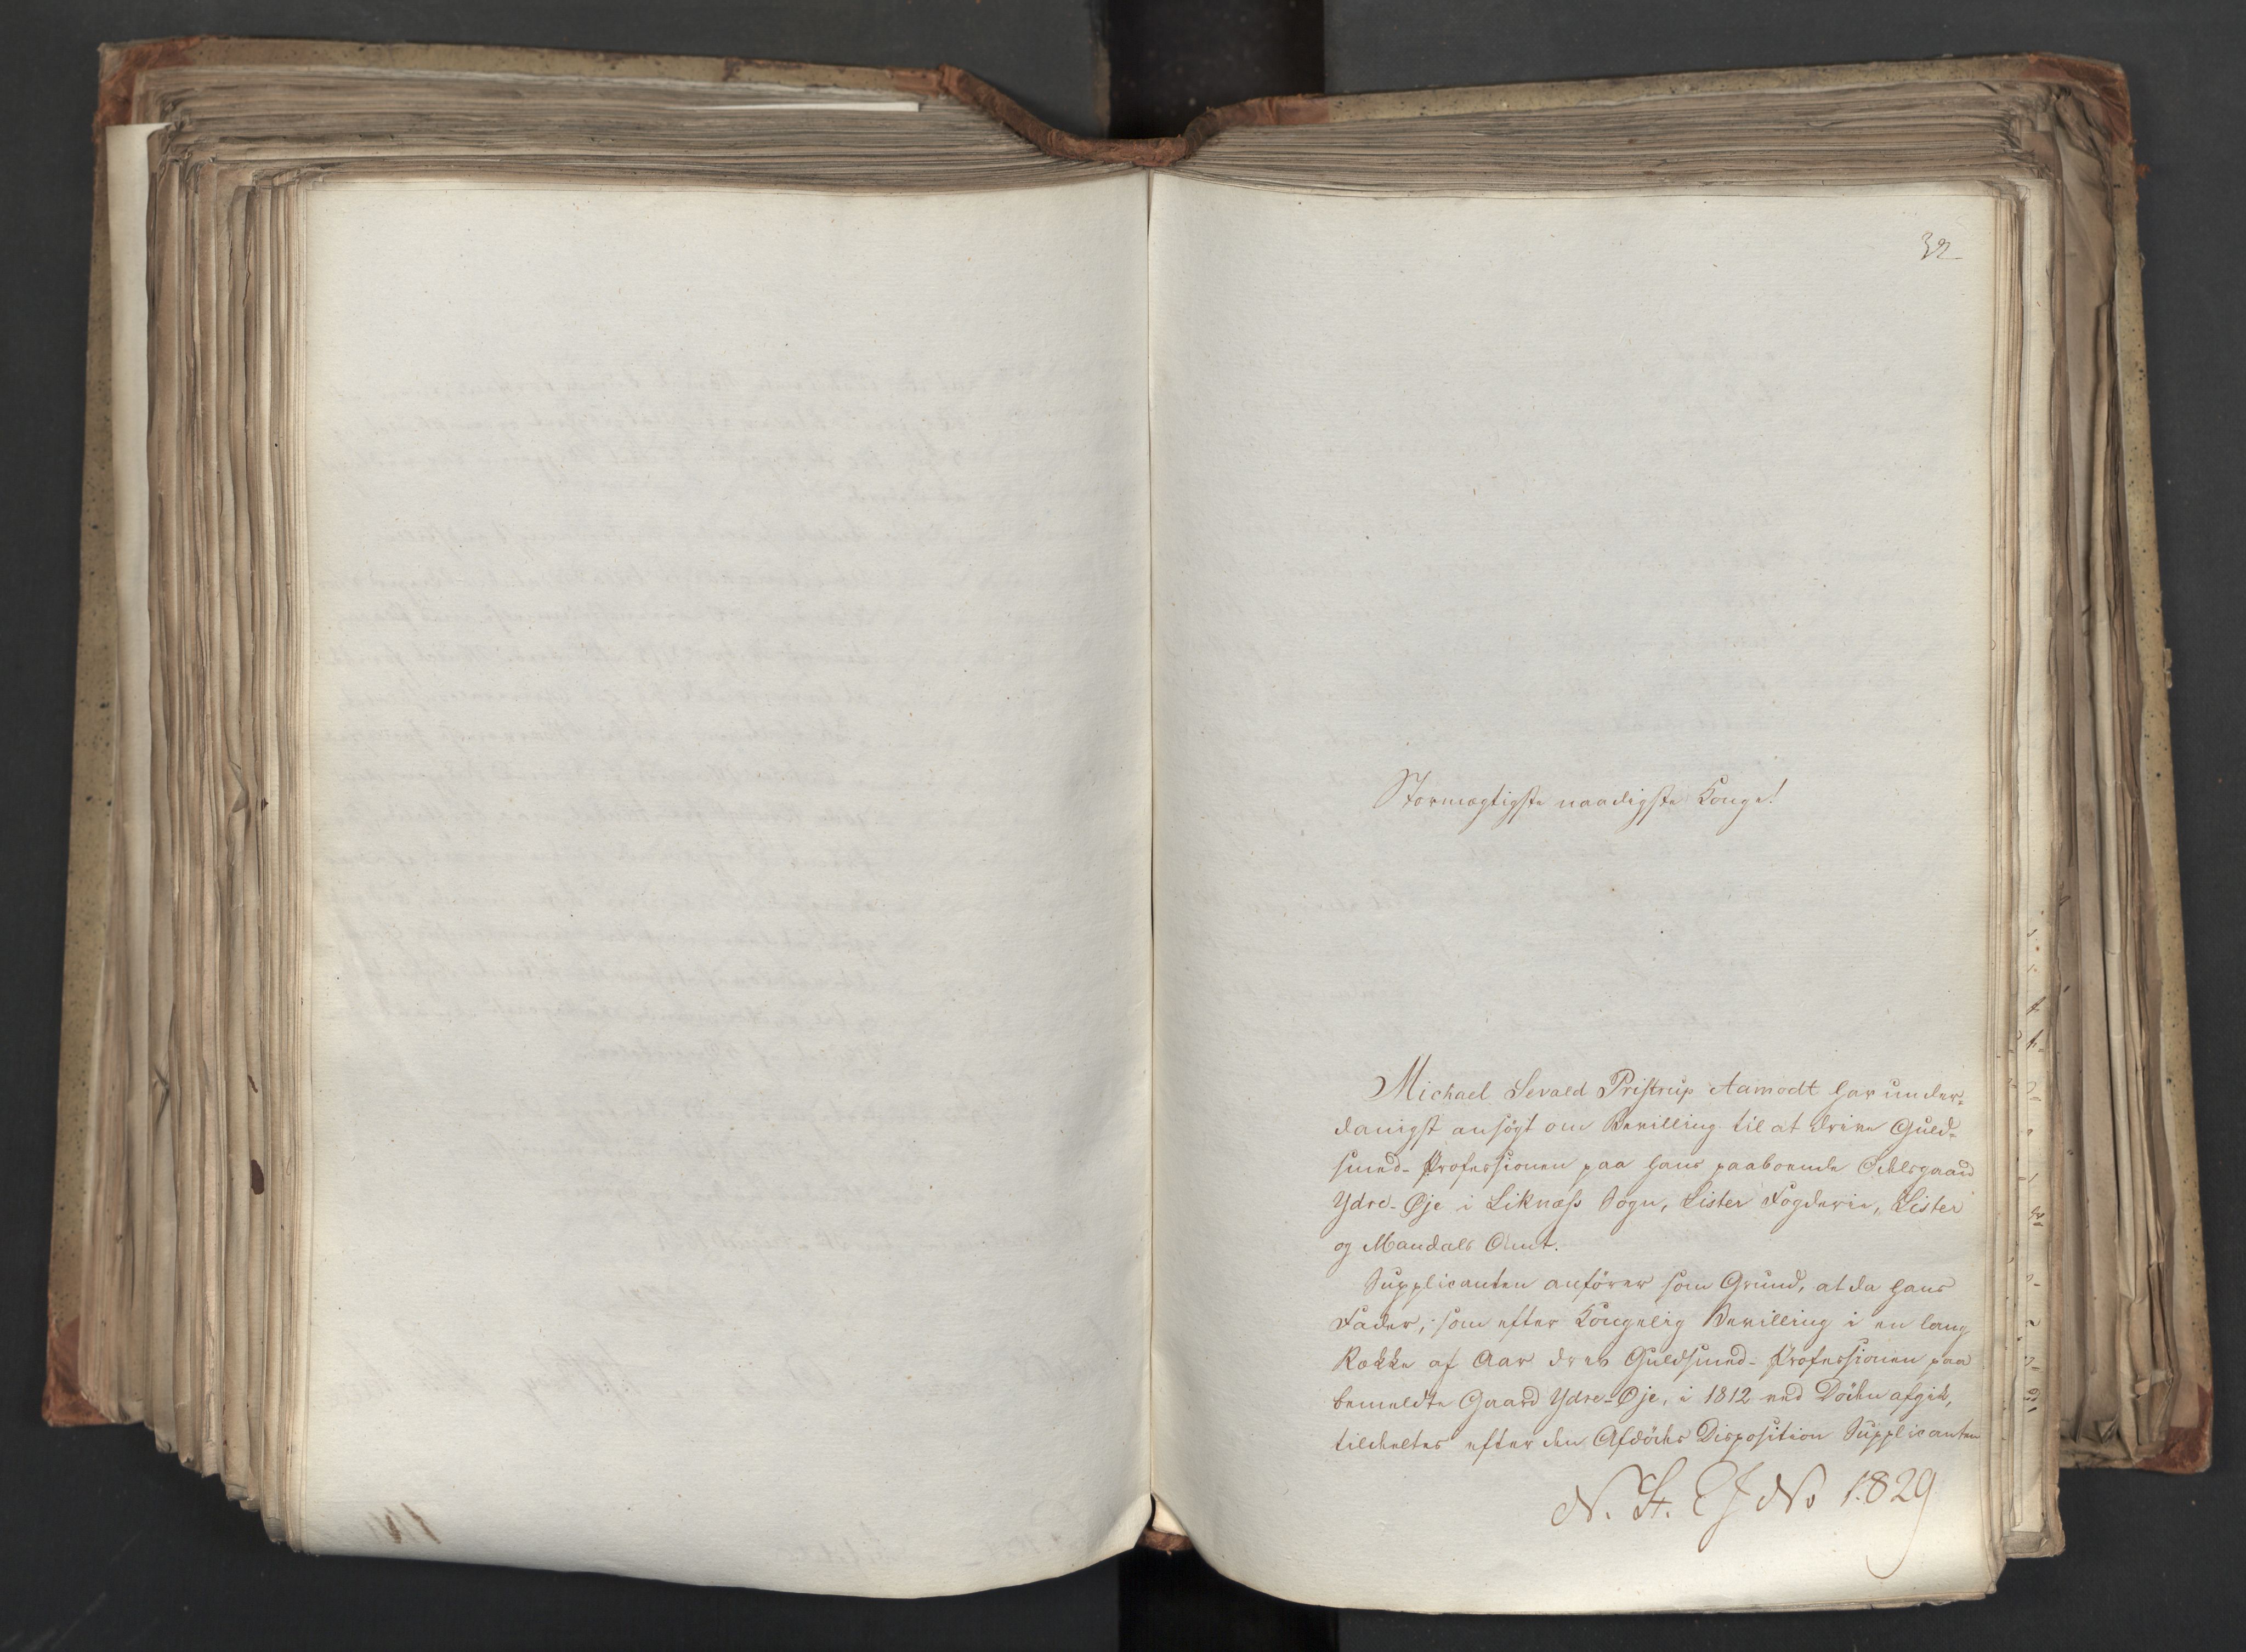 32
Stormægtigste naadigste Konge!
Michael Sevald Pristrup Aamodt har under-
danigst ansøgt om Bevilling til at drive Guld-
smed-Professionen paa hans paaboende Odelsgaard
Ydre-Øje i Liknæss Sogn, Lister Fogderie, Lister
og Mandals Amt.
Supplicanten anfører som Grund, at da hans
Fader, som efter Kongelig Bevilling i en lang
Række af Aar drev Guldsmed-Professionen paa
bemeldte Gaard Ydre-Øje, i 1812 ved Døden afgik,
tildeeltes efter den Afdødes Disposition Supplicanten
N. St. EJ No 1829